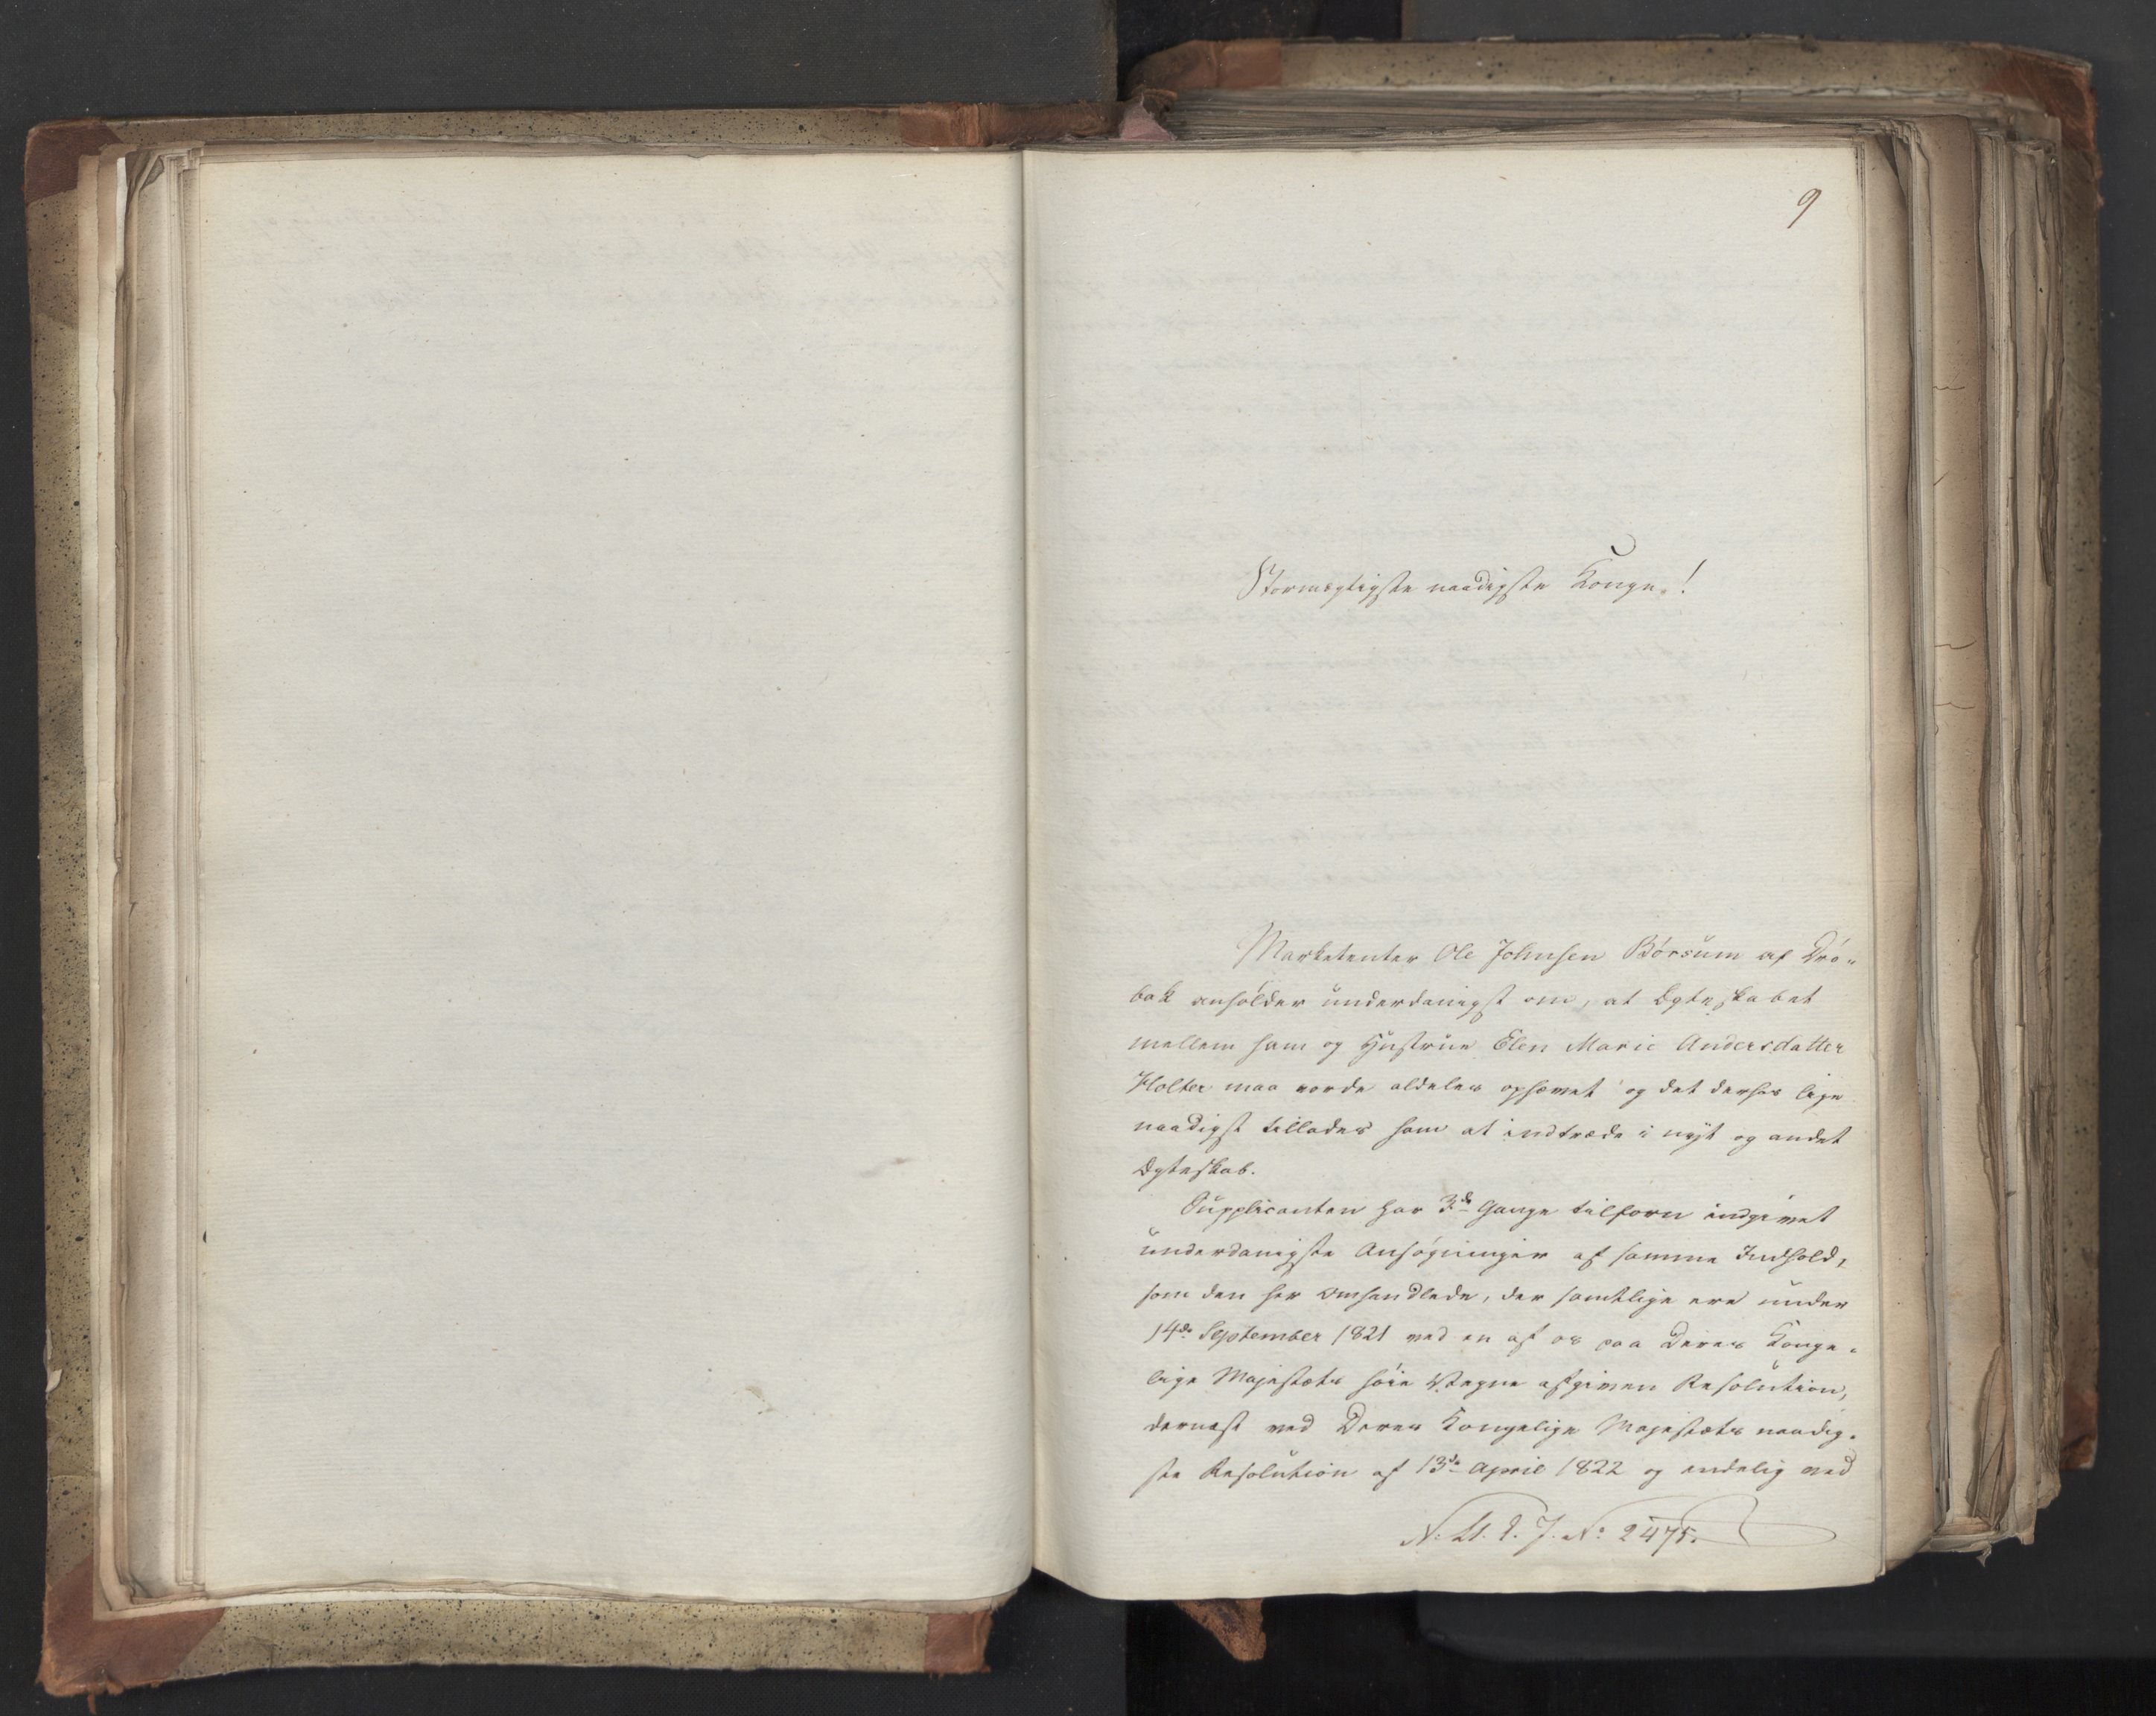 9
Stormægtigste naadigste Konge!
Marketenter Ole Johnsen Börsum af Drö-
bak anholder underdanigst om, at Egteskabet
mellem ham og Hustrue Elen Marie Andersdatter
Holter maa vorde aldeles ophævet og det derhos lige
naadigst tillades ham at indtræde i nyt og andet
Egteskab.
Supplicanten har 3de Gange tilforn indgivet
underdanigste Ansøgninger af samme Indhold,
som den her omhandlede, der samtlige ere under
14de September 1821 ved en af os paa Deres Konge-
lige Majestæts høie Vegne afgiven Resolution,
dernæst ved Deres Kongelige Majestæts naadig-
ste Resolution af 13de April 1822 og endelig ved
J. No 2475.